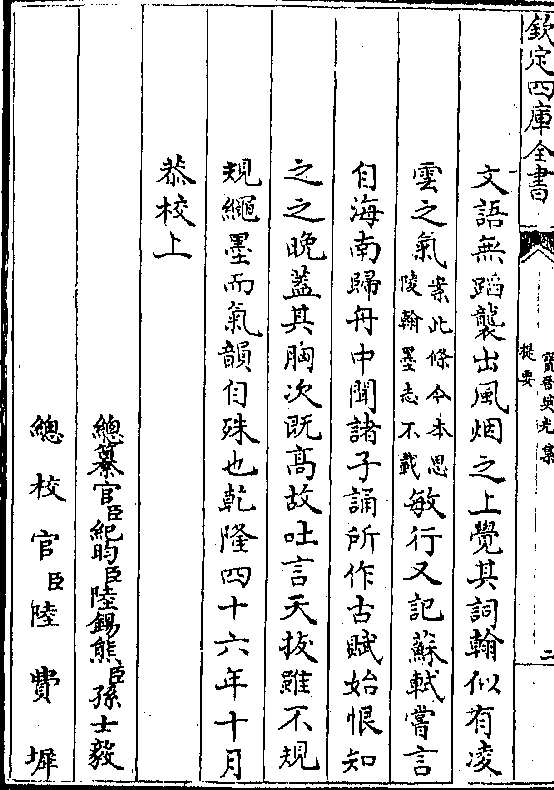 欽定四庫全書
寶晉英光集
提要
二
文語無蹈襲出風烟之上覺其詞翰似有凌
雲之氣案此條今本思陵翰墨志不載敏行又記蘇軾嘗言
自海南歸舟中聞諸子誦所作古賦始恨知
之之晚葢其胸次既高故吐言天拔雖不規
規繩墨而氣韻自殊也乾隆四十六年十月
恭校上
總纂官臣紀昀臣陸錫熊臣孫士毅
總校官臣陸費墀